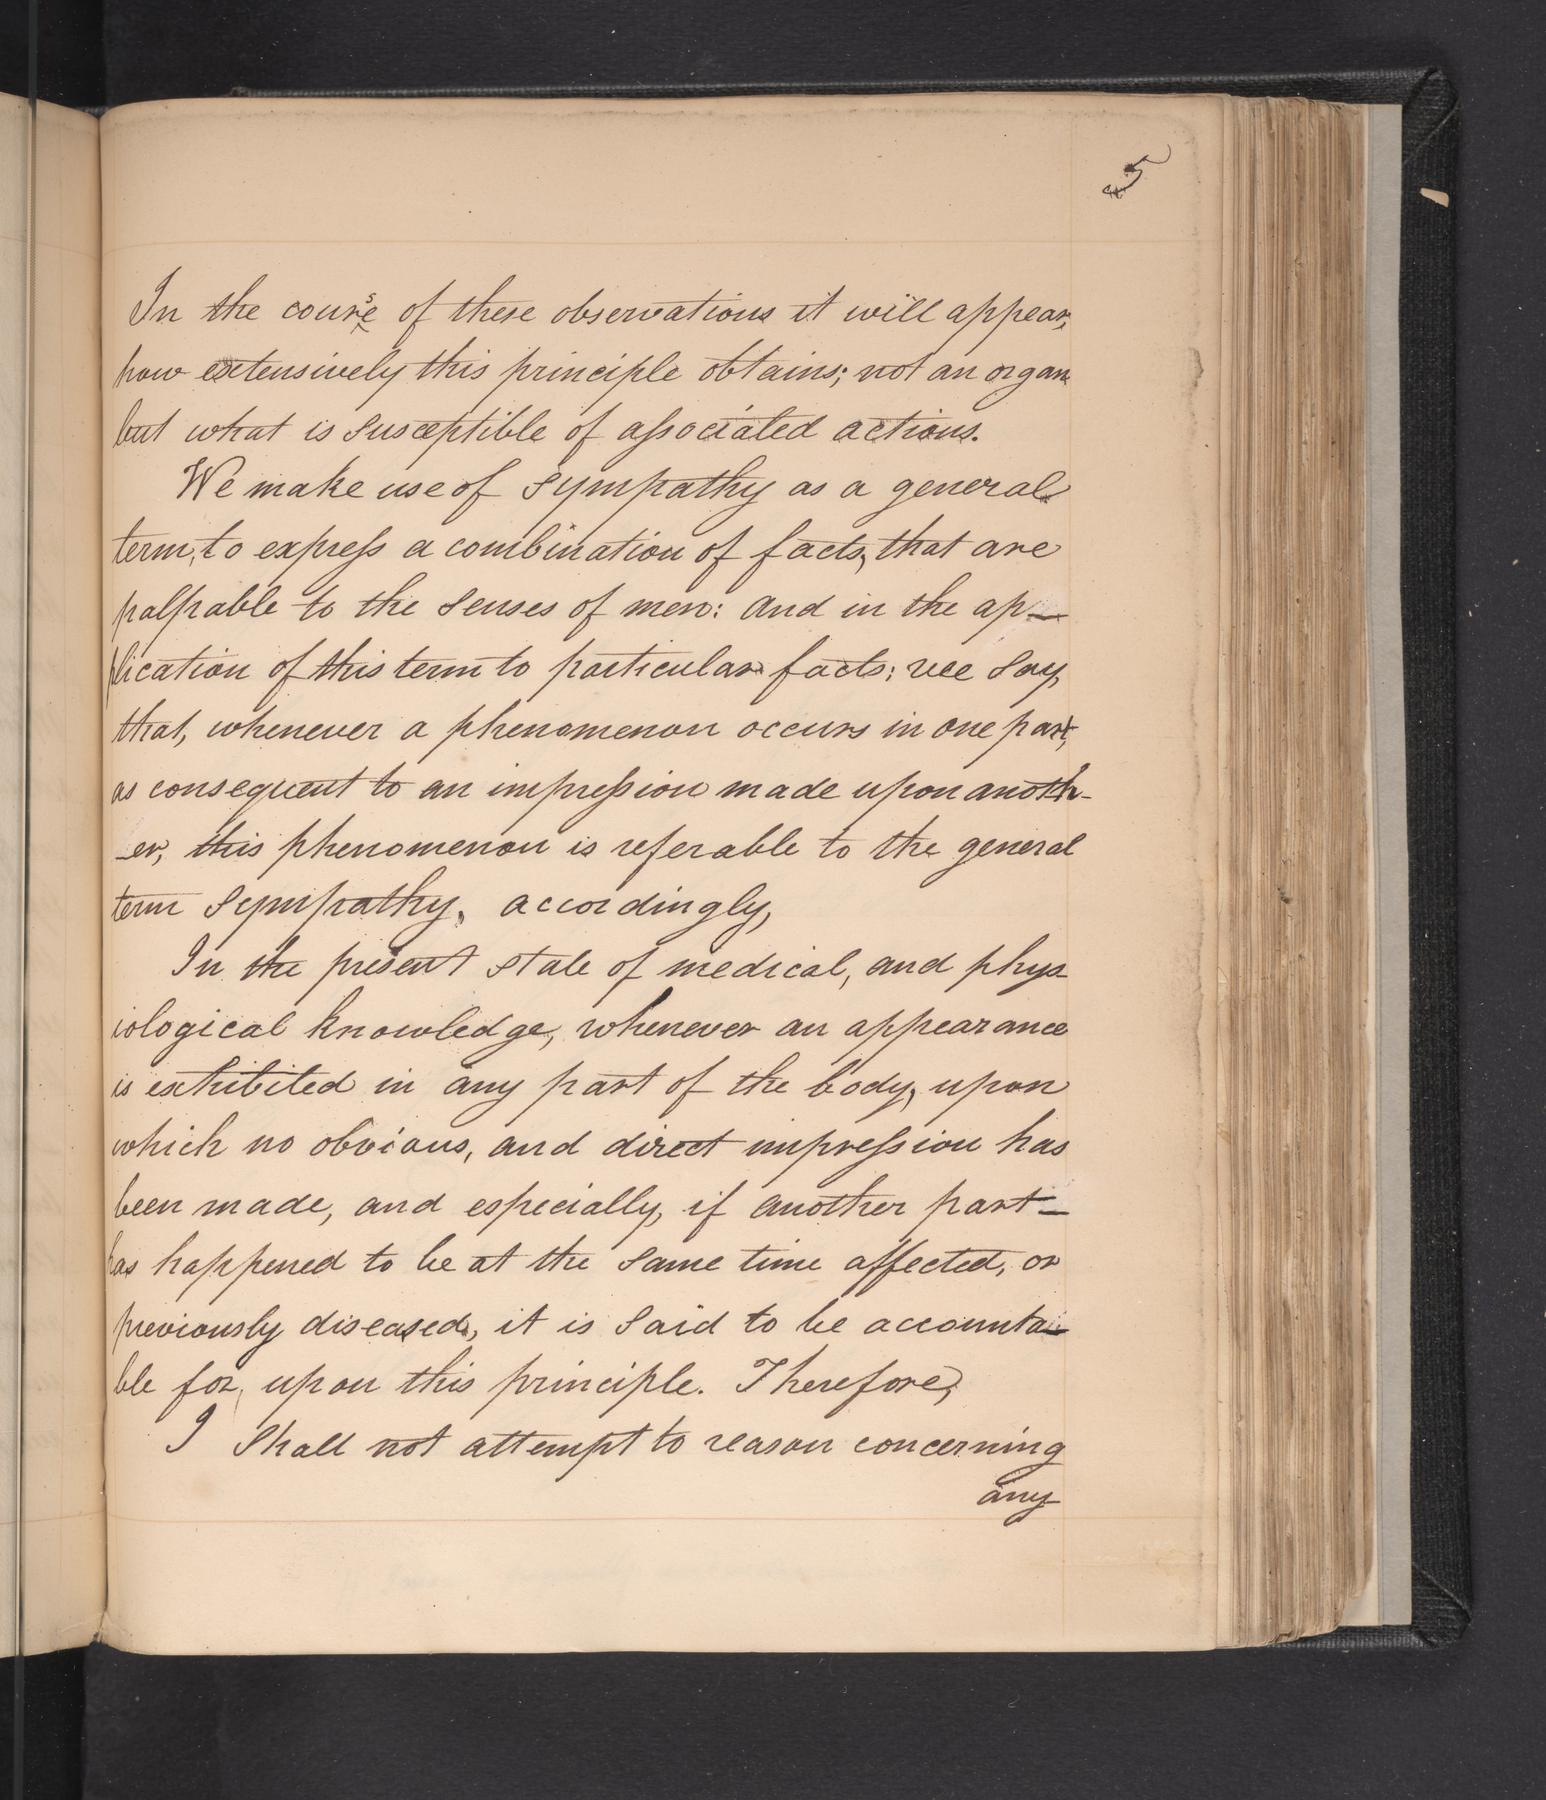 5
In the course of these observations it will appear,
how extensively this principle obtains; not an organ
but what is susceptible of aſsociated actions.
We make use of sympathy as a general
term, to expreſs a combination of facts, that are
palpable to the senses of men: and in the ap-
plication of this term to particular facts; we say,
that, whenever a phenomenon occurs in one part,
as consequent to an impreſsion made upon anoth-
-er, this phenomenon is referable to the general
term sympathy, accordingly,
In the present state of medical, and phys-
iological knowledge, whenever an appearance
is exhibited in any part of the body, upon
which no obvious, and direct impreſsion has
been made, and especially, if another part-
has happened to be at the same time affected, or
previously diseased, it is said to be accounta-
ble for, upon this principle. Therefore,
I shall not attempt to reason concerning
any